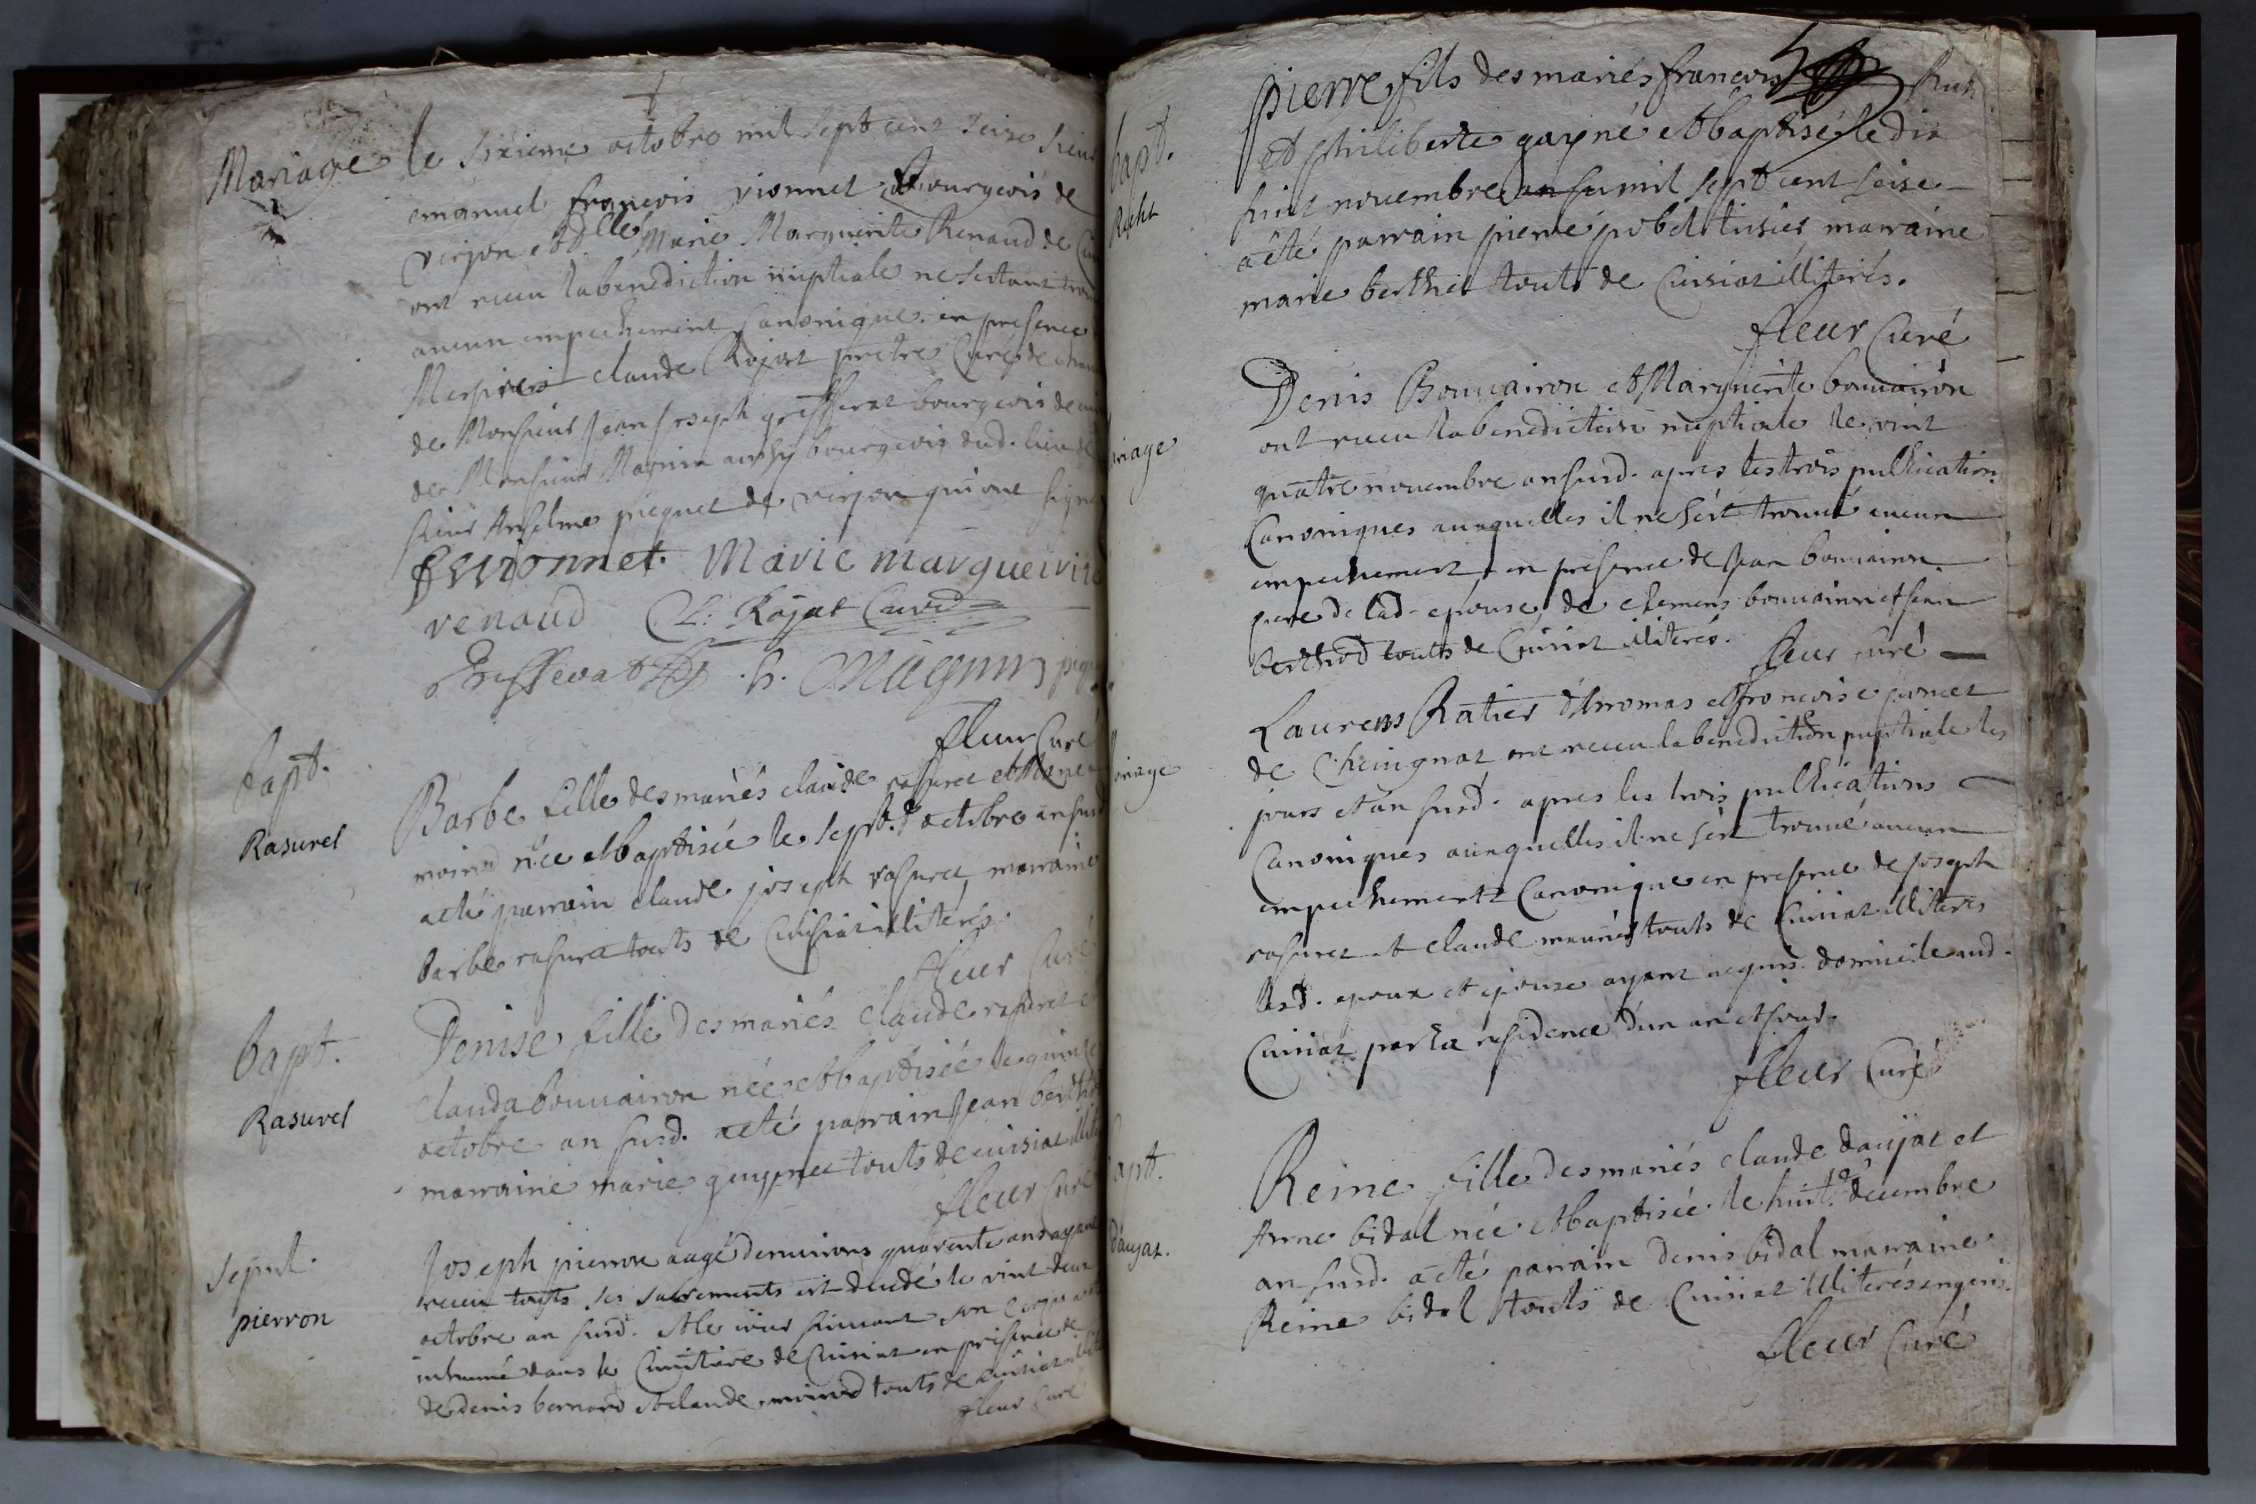 Mariage
le sixieme octobre mil sept cent seize sieur
emanuel francois vionnet bourgeois de
virjon et dlle Marie Marguerite Renaud de
ont receu la benediction nuptiale ne sestant
aucun empechement canonique en presence
Messire claude Rojat pretre Curé de
de Monsieur Jean Joseph gresserat bourgeois de
de Monsieur Marin aussy bourgeois dud. lieu de
sieur Anselme piequet de virjon qui ont signe
vionnet. Marie margueirite
renaud Cl: Rojat Curé
Gresserat h. Magnin
fleur Curé
bapt.
Rasurel
Barbe fille des mariés claude rasurel et
moind née et baptisée le sept.e octobre an susd
a eté parrain claude joseph rasurel, marraine
barbe rasurel touts de Cuisiat illiterés.
fleur Curé
bapt.
Rasurel
Denise fille des mariés claude rasurel et
clauda bouvairon née et baptisée le quinze
octobre an susd. a eté parrain Jean
marraine marie guypnel touts de cuisiat
fleur Curé
sepul.
pierron
Joseph pierron aagé denvirons quarente ans ayant
receu touts ses sacrements est decedé le vint deux
octobre an susd. et le jour suivant son corps
inhumé dans le Cimitiere de Cuisiat en presence de
de denis bernard et claude moind touts de cuisiat
fleur Curé
bapt.
pierre fils des mariés francois
et philiberte gayné et baptisé le dix
huit novembre mil sept cent seise
a eté parrain pierre pobel marraine
marie berthet touts de Cuisiat illiterés.
fleur Curé
riage
Denis Bouvairon et Marguerite bouvairon
ont receu la benediction nuptiale le vint
quatre novembre an susd. apres les trois publications
Canoniques auxquelles il ne sest trouvé aucun
empechement, en presence de Jean bouvairon
pere de lad. epouse, de clemens bouvairon et jean
berthod touts de Cuisiat illiterés. fleur curé
riage
Laurens Ratier dArromas et francoise
de Cheignat ont receu la benediction nuptiale les
jours et an susd. apres les trois publications
Canoniques auxquelles il ne sest trouvé aucun
empechement Canonique en presence de joseph
rasurel et claude meunier touts de Cuisiat illiterés
lesd. epoux et epouse ayant acquis domicile aud.
Cuisiat par la residence dun an et jour.
fleur Curé
bapt.
daujat.
Reine fille des mariés claude daujat et
Anne bidal née et baptisée le huit.e decembre
an susd. a eté parrain denis bidal marraine
Reine bidal touts de Cuisiat illiterés
fleur Curé